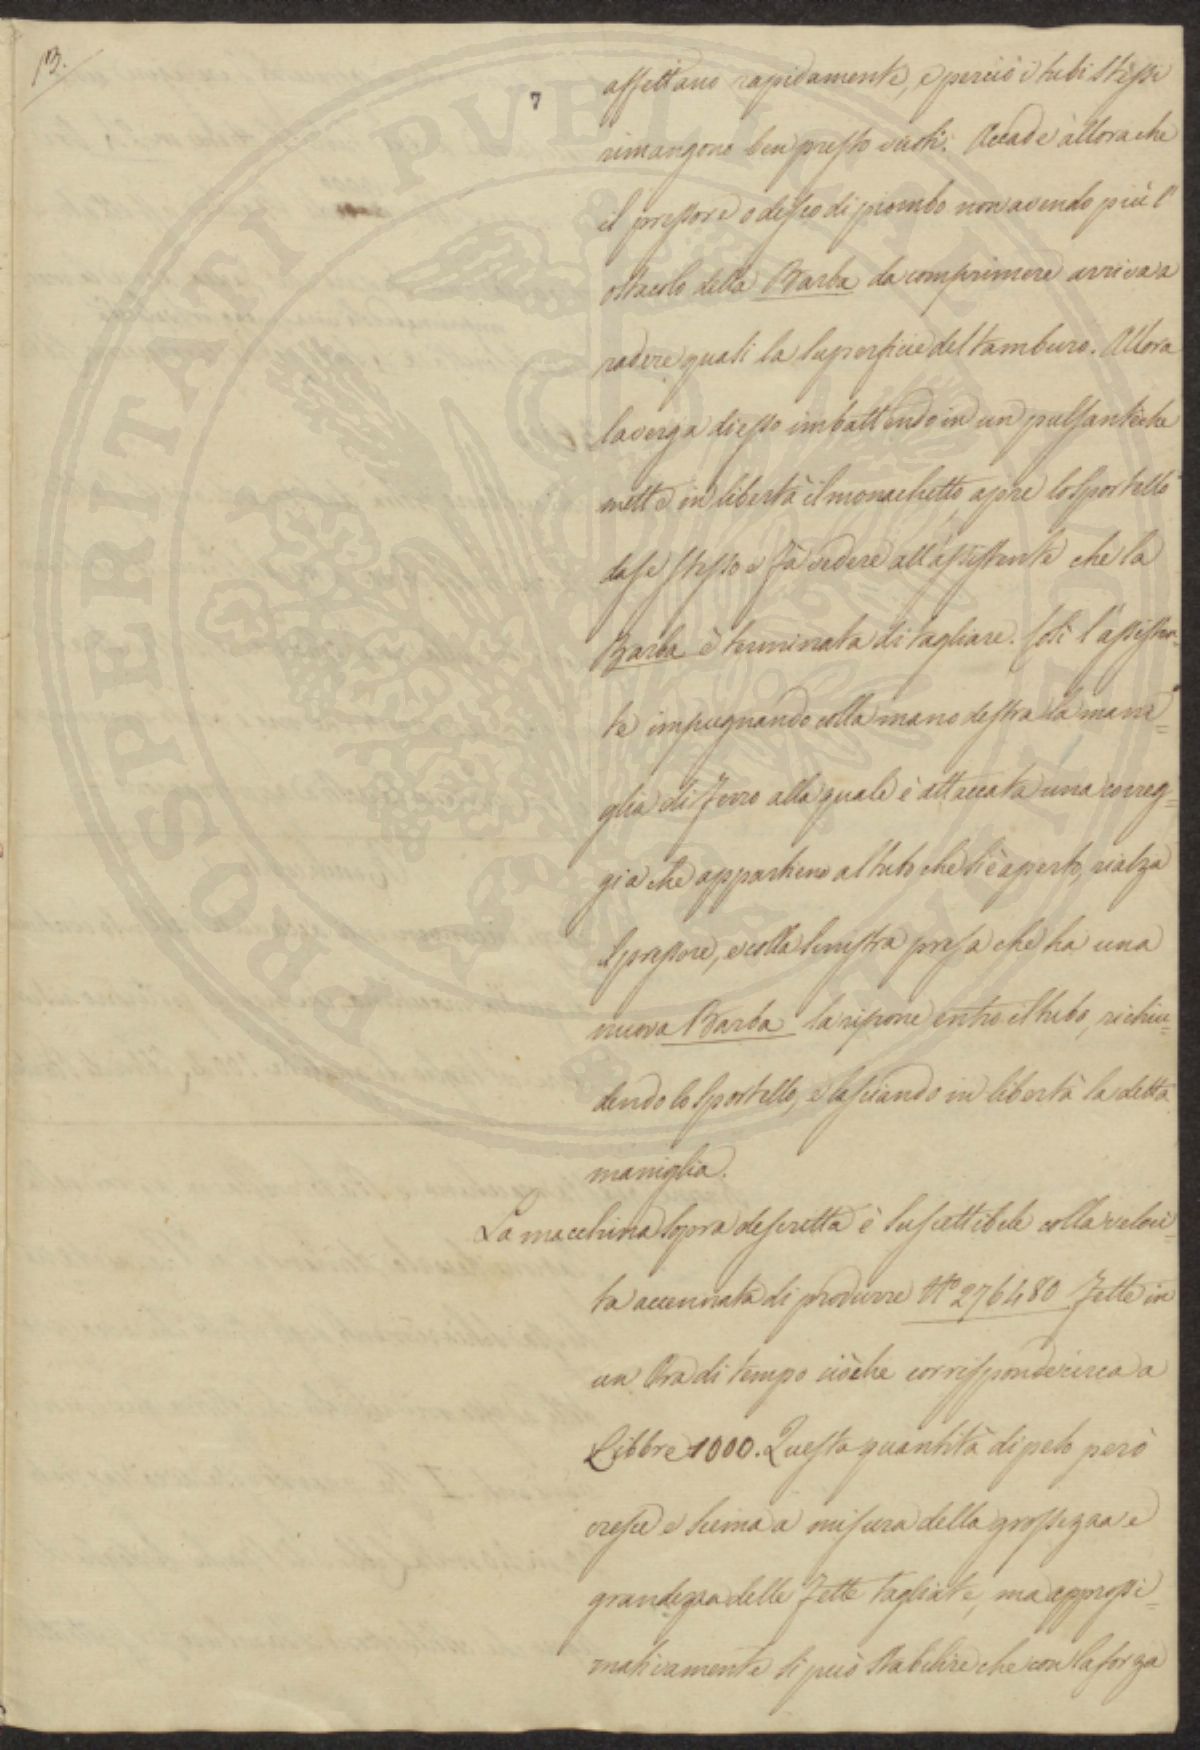 13.
7
affettano rapidamente, e perciò i tubi stessi
rimangono ben presto vuoti. Accade allora che
il pressore o desco di piombo non avendo più l'
ostacolo della Barba da comprimere arriva a
radere quasi la superficie del tamburo. Allora
la verga di esso imbattendo in un pulsante che
mette in libertà il monachetto, apre lo sportello
da se stesso e fà vedere all'assistente che la
Barba è terminata di tagliare. Così l'assisten-
te impugnando colla mano destra la mani=
glia di ferro alla quale è attaccata una correg=
gia che appartiene al tubo che si è aperto, rialza
il pressore, e colla sinistra presa che ha una
nuova Barba la ripone entro il tubo, richiu=
dendo lo sportello, e lasciando in libertà la detta
maniglia.
La macchina sopra descritta è suscettibile colla veloci=
ta accennata di produrre N.° 276480 fette in
un Ora di tempo ciòche corrisponde circa a
Libbre 1000. Questa quantità di peso però
cresce e scema a misura della grossezza e
grandezza delle fette tagliate, ma approssi=
mativamente si può stabilire che con la forza
PROSPERITASI PVBLICAE